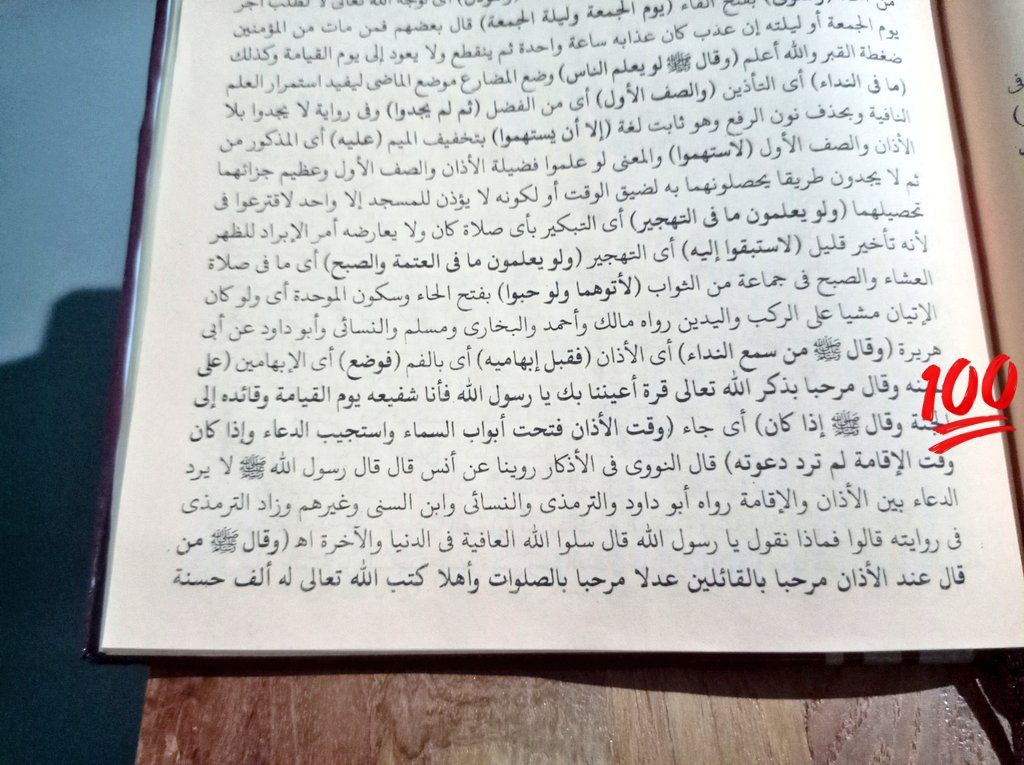 بفتح الفاء (يوم الجمعة وليلة الجمعة) قال بعضهم فمن مات من المؤمنين
يوم الجمعة أو ليلته إن عذب كان عذابه ساعة واحدة ثم ينقطع ولا يعود إلى يوم القيامة وكذلك
ضغطة القبر والله أعلم (وقال ﷺ لو يعلم الناس) وضع المضارع موضع الماضى ليفيد استمرار العلم
(ما فى النداء) أى التأذين (والصف الأول) أى من الفضل (ثم لم يجدوا) وفى رواية لا يجدوا بلا
النافية وبحذف نون الرفع وهو ثابت لغة (إلا أن يستهموا) بتخفيف الميم (عليه) أى المذكور من
الأذان والصف الأول (لاستهموا) والمعنى لو علموا فضيلة الأذان والصف الأول وعظيم جزائهما
ثم لا يجدون طريقا يحصلونهما به لضيق الوقت أو لكونه لا يؤذن للمسجد إلا واحد لاقترعوا فى
تحصيلهما (ولو يعلمون ما فى التهجير) أى التبكير بأى صلاة كان ولا يعارضه أمر الإبراد للظهر
لأنه تأخير قليل (لاستبقوا إليه) أى التهجير (ولو يعلمون ما فى العتمة والصبح) أى ما فى صلاة
العشاء والصبح فى جماعة من الثواب (لأتوهما ولو حبوا) بفتح الحاء وسكون الموحدة أى ولو كان
الإتيان مشيا على الركب واليدين رواه مالك وأحمد والبخارى ومسلم والنسائى وأبو داود عن أبى
هريرة (وقال ﷺ من سمع النداء) أى الأذان (فقبل إبهاميه) أى بالفم (فوضع) أى الإبهامين (على
وقال مرحبا بذكر الله تعالى قرة أعيننا بك يا رسول الله فأنا شفيعه يوم القيامة وقائده إلى
الجنة وقال ﷺ إذا كان) أى جاء (وقت الأذان فتحت أبواب السماء واستجيب الدعاء وإذا كان
وقت الإقامة لم ترد دعوته) قال النووى فى الأذكار روينا عن أنس قال قال رسول الله ﷺ لا يرد
الدعاء بين الأذان والإقامة رواه أبو داود والترمذى والنسائى وابن السنى وغيرهم وزاد الترمذى
فى روايته قالوا فماذا نقول يا رسول الله قال سلوا الله العافية فى الدنيا والآخرة اه (وقال ﷺ من
قال عند الأذان مرحبا بالقائلين عدلا مرحبا بالصلوات وأهلا كتب الله تعالى له ألف حسنة
100